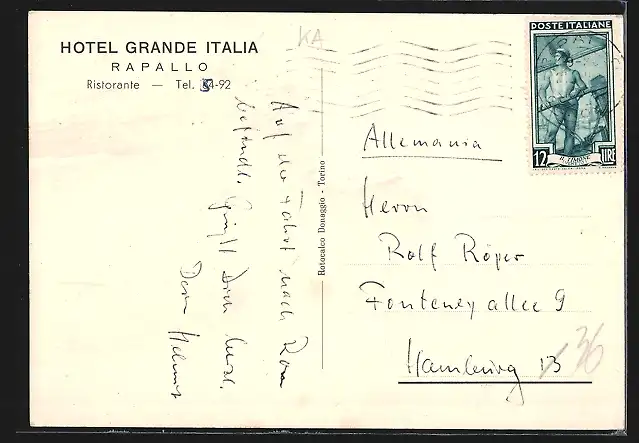 HOTEL GRANDE ITALIA
RAPALLO
Ristorante — Tel. 4-92
KA
Auf der Fahrt nach Rom
befindl. grüßt Dich herzl.
Dein Helmut
Rotocalco Donaggio - Torino
POSTE ITALIANE
12 IL TIMONE LIRE
Allemania
Herrn
Rolf Röper
Fontenay allee 9
Hamburg 13
36